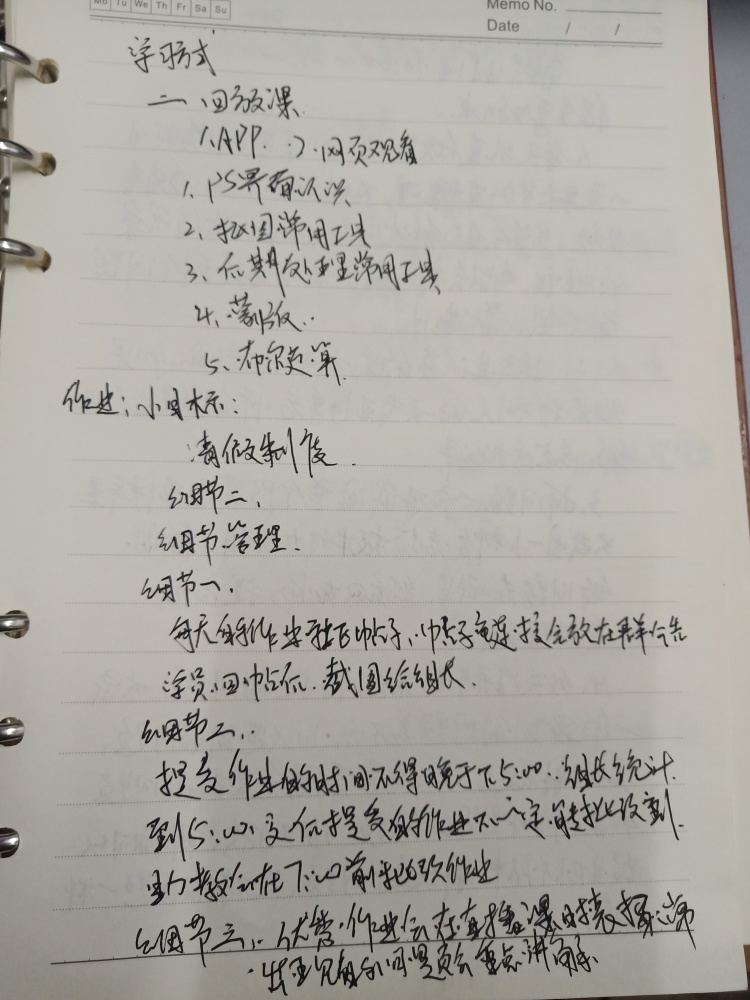 Mo Tu We Th Fr Sa Su
Memo No.
Date / /
学习方式
二、回放课
1、APP. 2、网页观看
1、PS界面认识
2、抠图常用工具
3、后期处理常用工具
4、蒙版..
5、布尔运算.
作业:小目标:
请假制度.
细节二、
细节管理.
细节一、
每天的作业帖子,帖子连接会放在群公告
学员回帖后.截图给组长.
细节二、.
提交作业的时间不得晚于下5:00.组长统计.
到5:00.之后提交的作业不一定能批改到.
助教会在7:00前批改作业
细节三、.优秀作业会在直播课时表扬
出现的问题会重点讲解.